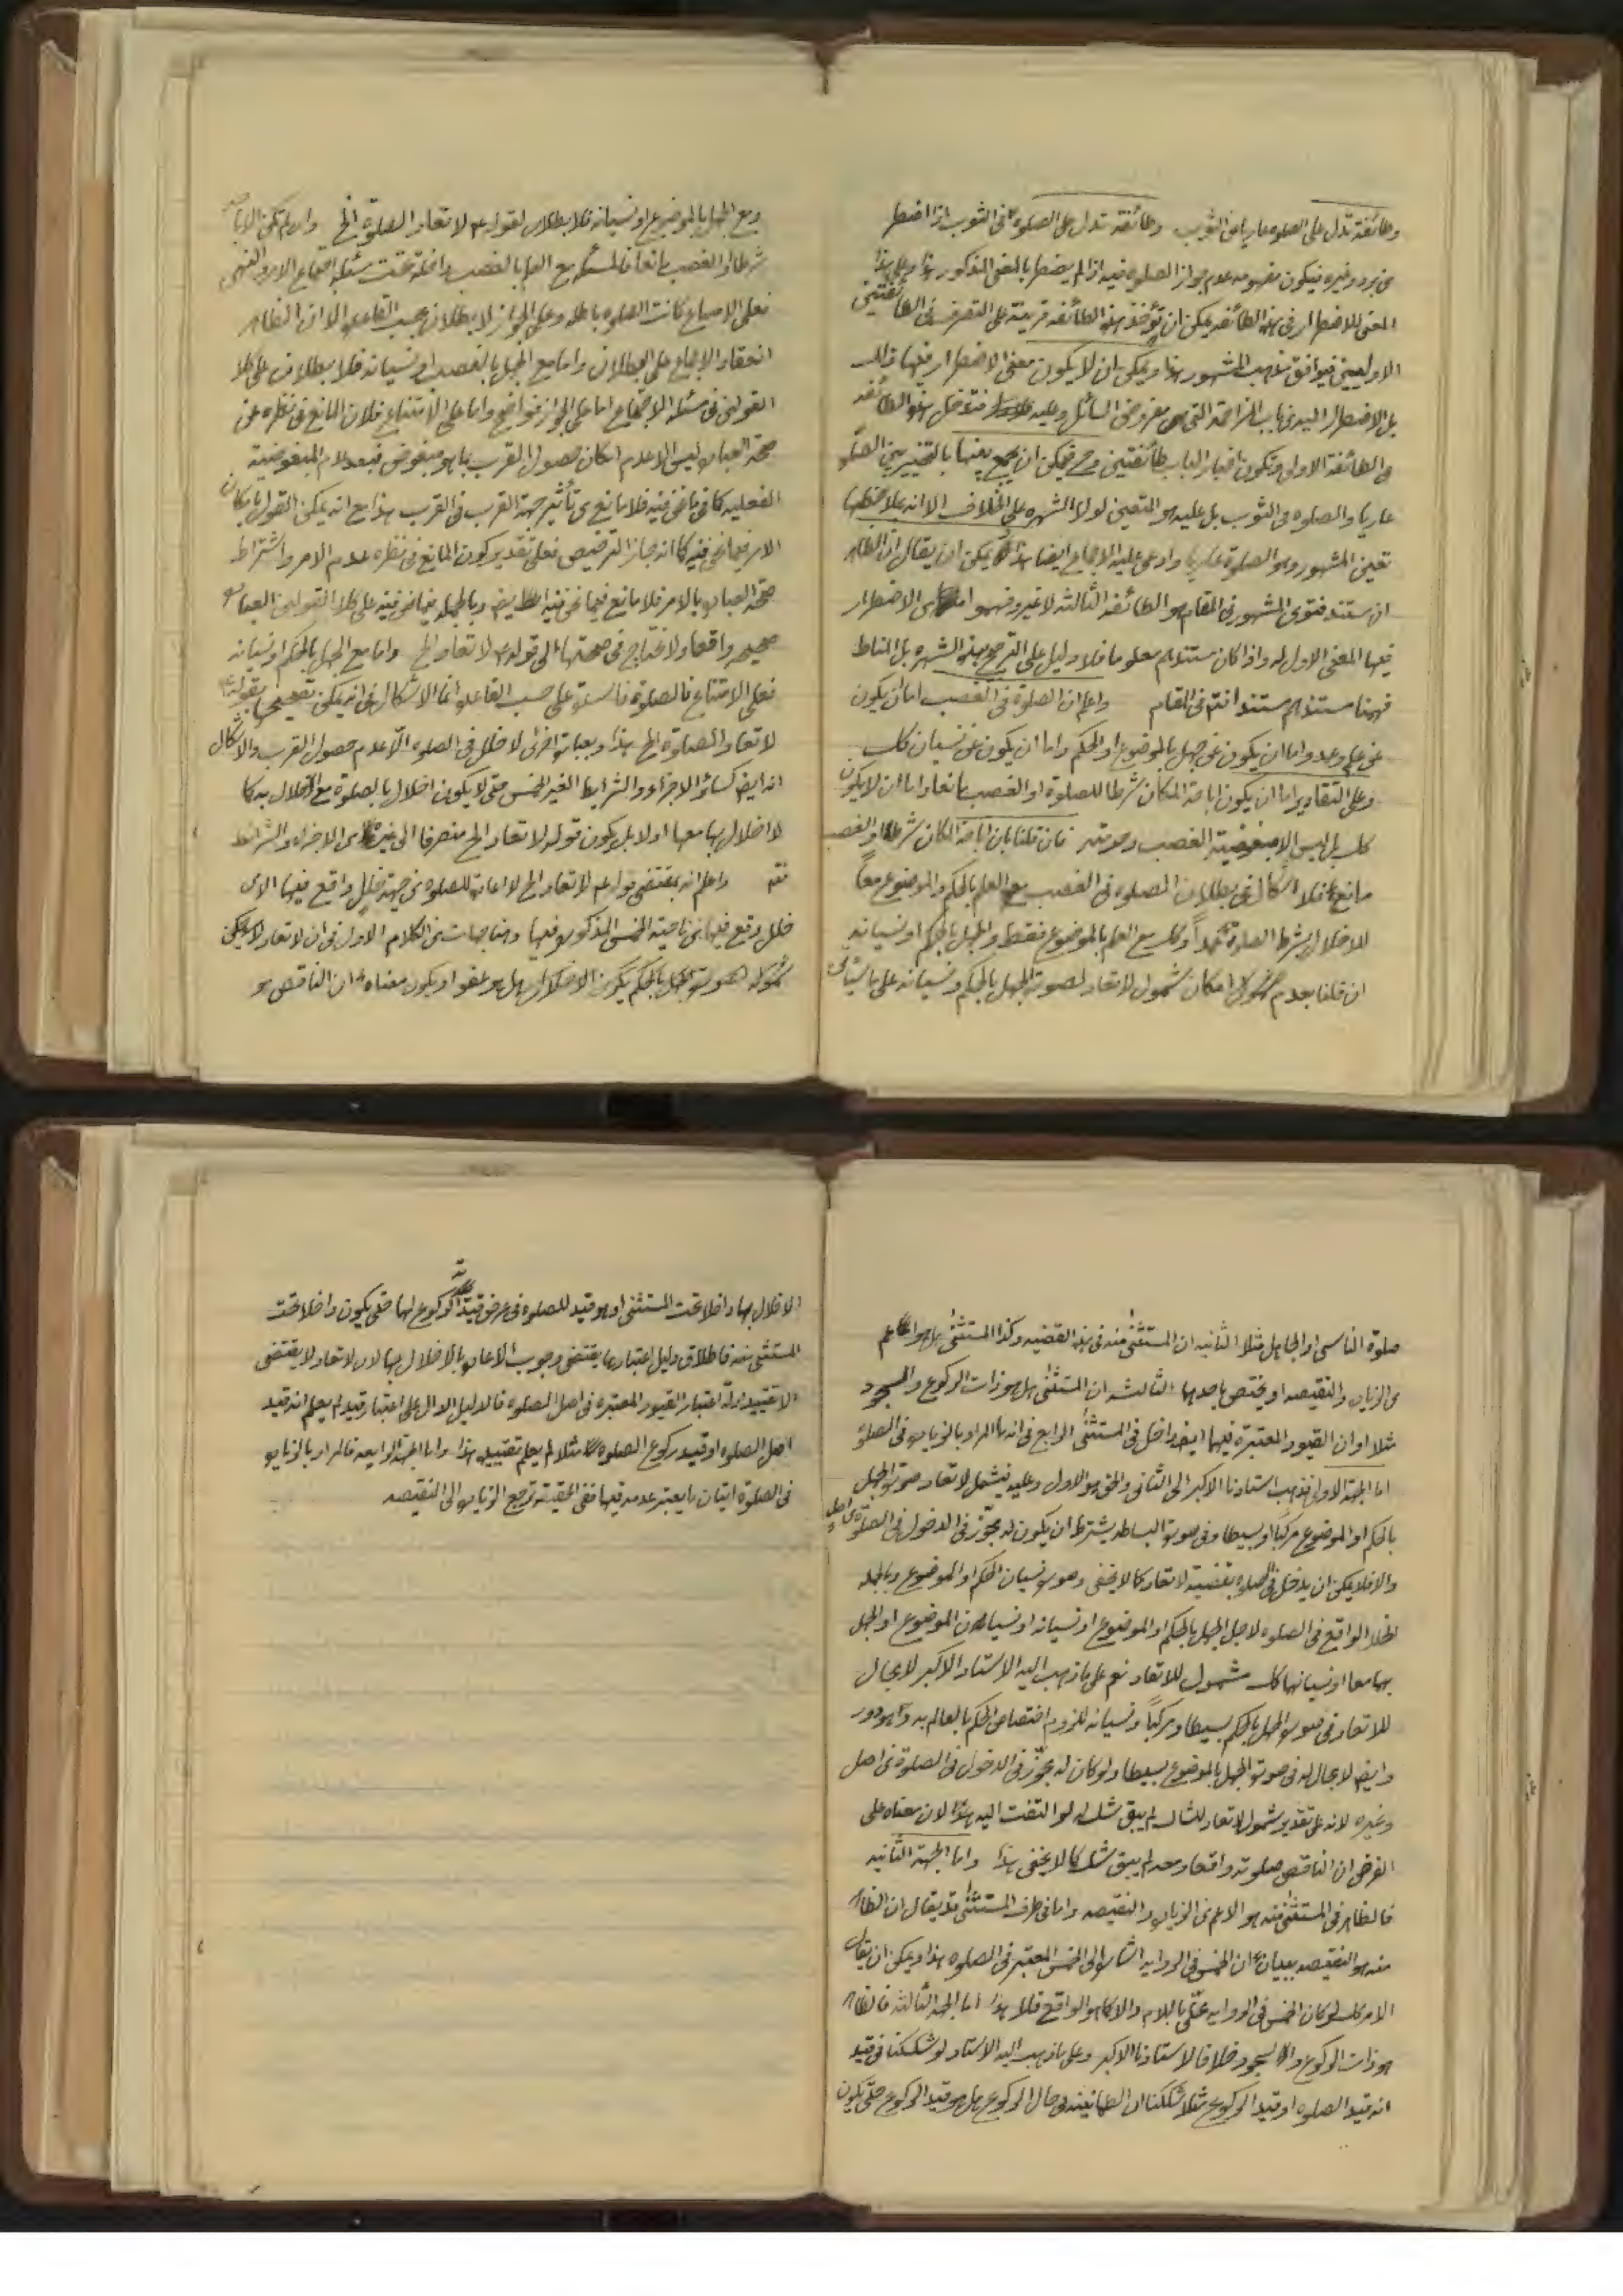 وطائفة تدل على الصلوة عاريا عن الثوب وطائفة تدل على الصلوة فى الثوب اذا اضطر
من برد وغيره فيكون مفهومه عدم جواز الصلوة فيه اذا لم يضطر بالمعنى المذكور هذا وعلى هذا
المعنى للاضطرار فى هذه الطائفه يمكن ان تؤخذ هذه الطائفه قرينة على التصرف فى الطائفتين
الاوليين فيوافق مذهب المشهور هذا ويمكن ان لا يكون معنى الاضطرار فيها ذلك
بل الاضطرار اليه فى باب المزاحمة التى هى مفروض السائل وعليه فتدخل هذه الطائفه
فى الطائفة الاولى وتكون اخبار الباب طائفتين وح فيمكن ان يجمع بينها بالتخيير بين الصلوة
عاريا والصلوة فى الثوب بل عليه هو المتعين لولا الشهره على الخلاف الا انه بملاحظتها
تعين المشهور وهو الصلوة عاريا وادعى عليه الاجماع ايضا هذا يمكن ان يقال ان الظاهر
ان مستند فتوى المشهور فى المقام هو الطائفه الثالثه لا غير وفهموا من الاضطرار
فيها المعنى الاول له واذا كان مستندهم معلوما فلا دليل على الترجيح بهذه الشهره بل المناط
فهمنا مستندهم مستندا فتم فى المقام واعلم ان الصلوة فى الغصب اما ان يكون
عن علم وعمد واما ان يكون عن جهل بالموضوع او الحكم واما ان يكون عن نسيان كك
وعلى التقادير اما ان يكون اباحة المكان شرطا للصلوة او الغصب مانعا واما ان لا يكون
كك بل ليس الا مبغوضية الغصب وحرمته فان قلنا بان اباحة المكان شرط او الغصب
مانع فلا اشكال فى بطلان الصلوة فى الغصب مع العلم بالحكم والموضوع معاً
للاخلال بشرط الصلوة عمداً وكك مع العلم بالموضوع فقط والجهل بالحكم او نسيانه
ان قلنا بعدم امكان شمول لاتعاد لصورة الجهل بالحكم ونسيانه على ما سيأتى
ومع الجهل بالموضوع او نسيانه فلا بطلان لقوله ع لا تعاد الصلوة الخ وان لم تكن الاباحة
شرطا والغصب مانعا فالمسئله مع العلم بالغصب داخلة تحت مسئله اجتماع الامر والنهى
فعلى الامتناع كانت الصلوة باطله وعلى الجواز لا بطلان بحسب القاعدة الا ان الظاهر
انعقاد الاجماع على البطلان واما مع الجهل بالغصب او نسيانه فلا بطلان على كلا
القولين فى مسئله الاجتماع اما على الجواز فواضح واما على الامتناع فلان المانع فى نظره عن
صحة العبادة ليس الا عدم امكان حصول القرب بما هو مبغوض فبعد عدم المبغوضية
الفعليه كما فى ما نحن فيه فلا مانع من تأثير جهة القرب فى القرب هذا مع انه يمكن القول بامكان
الامر فيما نحن فيه كما انه جاز الترخيص فعلى تقدير كون المانع فى نظره عدم الامر واشتراط
صحة العبادة بالامر فلا مانع فيما نحن فيه ايض وبالجمله فيما نحن فيه على كلا القولين العبادة
صحيحه واقعا ولا نحتاج فى صحتها الى قوله ع لا تعاد الخ واما مع الجهل بالحكم او نسيانه
فعلى الامتناع فالصلوة فاسدة على حسب القاعدة وانما الاشكال فى انه يمكن تصحيحها بقوله ع
لا تعاد الصلوة الخ هذا وبعبارة اخرى لا خلل فى الصلوة الّا عدم حصول القرب والاشكال
انه ايض كسائر الاجزاء والشرايط الغير الخمس حتى لا يكون اخلال بالصلوة مع الاخلال به كما
لا اخلال بها معها او لا بل يكون قوله لا تعاد الخ منصرفا الى غيره من الاجزاء والشرائط
فقه واعلم انه بمقتضى قوله ع لا تعاد الخ لا اعادة للصلوة من جهة خلل واقع فيها الا من
خلل وقع فيها من ناحية الخمس المذكوره فيها وهنا جهات من الكلام الاولى فى ان لا تعاد يمكن
شموله لصورة الجهل بالحكم يكون الاخلال بل هو عفو او يكون معناه ان الناقص هو
صلوة الناسى او الجاهل مثلا الثانيه ان المستثنى منه فى هذه القضيه وكذا المستثنى هل هو اعم
من الزيادة والنقيصه او يختص باحدها الثالثه ان المستثنى هل هو ذات الركوع والسجود
مثلا او ان القيود المعتبرة فيها ايضا داخل فى المستثنى الرابع فى انه ما المراد بالزيادة فى الصلوة
اما الجهة الاولى فذهب استادنا الاكبر الى الثانى والحق هو الاول وعليه فيشمل لا تعاد صورة الجهل
بالحكم او الموضوع مركباً او بسيطا وفى صورة البساطه يشترط ان يكون له مجوّز فى الدخول فى الصلوة من اصل
والا فلا يمكن ان يدخل فى الصلوة بقضية لا تعاد كما لا يخفى وصورة نسيان الحكم او الموضوع وبالجمله
الخلل الواقع فى الصلوة لاجل الجهل بالحكم او الموضوع او نسيانه او نسيان الموضوع او الجهل
بهما معا او نسيانهما كك مشمول للاتعاد نعم على ما ذهب اليه الاستاد الاكبر لا مجال
للاتعاد فى صورة الجهل بالحكم بسيطا ومركباً ونسيانه للزوم اختصاص الحكم بالعالم به وهو دور
وايض لا مجال له فى صورة الجهل بالموضوع بسيطا ولو كان له مجوّز فى الدخول فى الصلوة من اصل
وغيره لانه على تقدير شمول لاتعاد للشاك لم يبق شك له لو التفت اليه هذا لان معناه على
الفرض ان الناقص صلوته واقعا ومعه لم يبق شك كما لا يخفى هذا واما الجهة الثانيه
فالظاهر فى المستثنى منه هو الاعم من الزيادة والنقيصه واما فى طرف المستثنى قد يقال ان الظاهر
منه هو النقيصه ببيان ان الخمس فى الروايه اشارة الى الخمس المعتبر فى الصلوة هذا ويمكن ان يقال
الامر كك لو كان الخمس فى الروايه محلّى باللام والا كما هو الواقع فلا هذا اما الجهة الثالثه فالظاهر
هو ذات الركوع والسجود خلافا لاستادنا الاكبر وعلى ما ذهب اليه الاستاد لو شككنا فى قيد
انه قيد الصلوة او قيد الركوع مثلا شككنا ان الطمانينه فى حال الركوع هل هو قيد الركوع حتى يكون
الاخلال بها داخلا تحت المستثنى او هو قيد للصلوة فى عرض قيدية الركوع لها حتى يكون داخلا تحت
المستثنى منه فاطلاق دليل اعتبارها يقتضى وجوب الاعادة بالاخلال بها لان لا تعاد لا يقتضى
الا تقييد ادلّة اعتبار القيود المعتبره فى اصل الصلوة فالدليل الدال على اعتبار قيد لم يعلم انه قيد
اصل الصلوة او قيد ركوع الصلوة مثلا لم يعلم تقييده هذا واما الجهة الرابعه فالمراد بالزيادة
فى الصلوة اتيان ما يعتبر عدمه فيها ففى الحقيقة ترجع الزيادة الى النقيصه